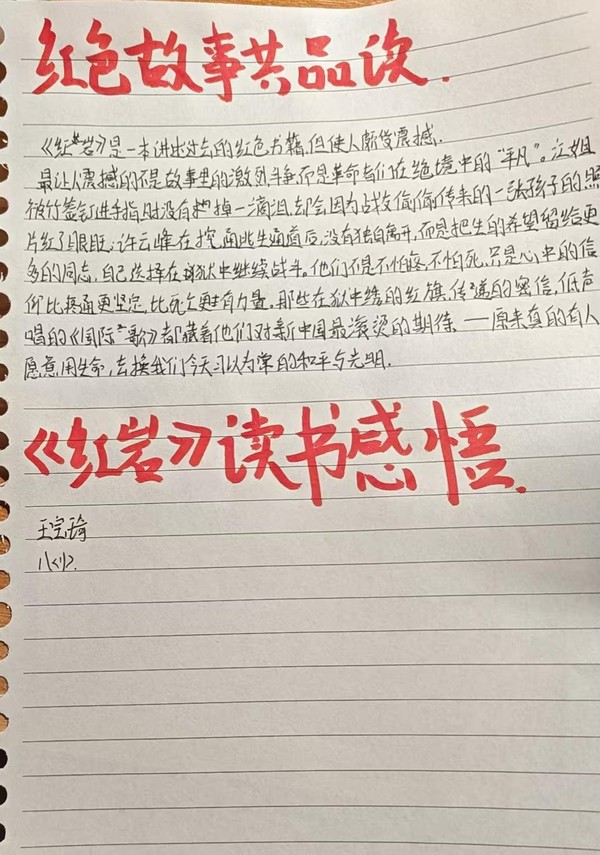 红色故事共品读.
《红岩》是一本讲述过去的红色书籍,但使人颇受震撼.
最让人震撼的不是故事里的激烈斗争而是革命者们在绝境中的“平凡”。江姐
被竹签钉进手指时没有掉一滴泪,却会因为战友偷偷传来的一张孩子的照
片红了眼眶;许云峰在挖通逃生通道后,没有独自离开,而是把生的希望留给更
多的同志,自己选择在狱中继续战斗。他们不是不怕疼、不怕死,只是心中的信
仰比疼痛更坚定,比死亡更有力量。那些在狱中绣的红旗、传递的密信,低声
唱的《国际歌》都藏着他们对新中国最滚烫的期待——原来真的有人
愿意用生命,去换我们今天习以为常的和平与光明.
《红岩》读书感悟.